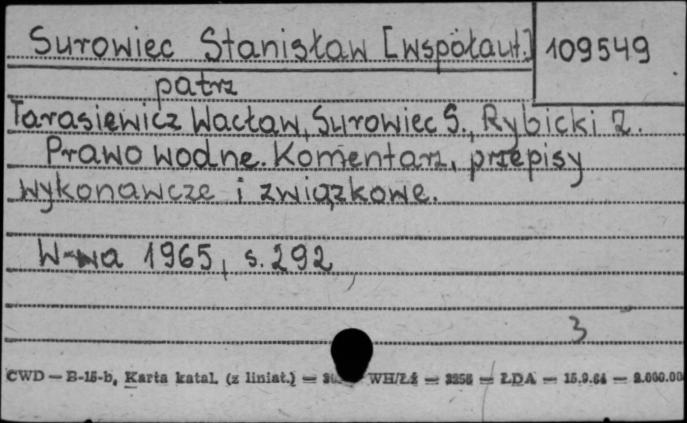 Surowiec Stanisław [współaut.] 109549
patrz
Tarasiewicz Wacław, Surowiec S., Rybicki Z.
Prawo wodne. Komentarz, przepisy
wykonawcze i związkowe.
W-wa 1965, s. 292
3
CWD — B-15-b, Karta katal. (z liniat.) — WH/Łź — 3256 — ŁDA — 15.9.64 — 2.000.00